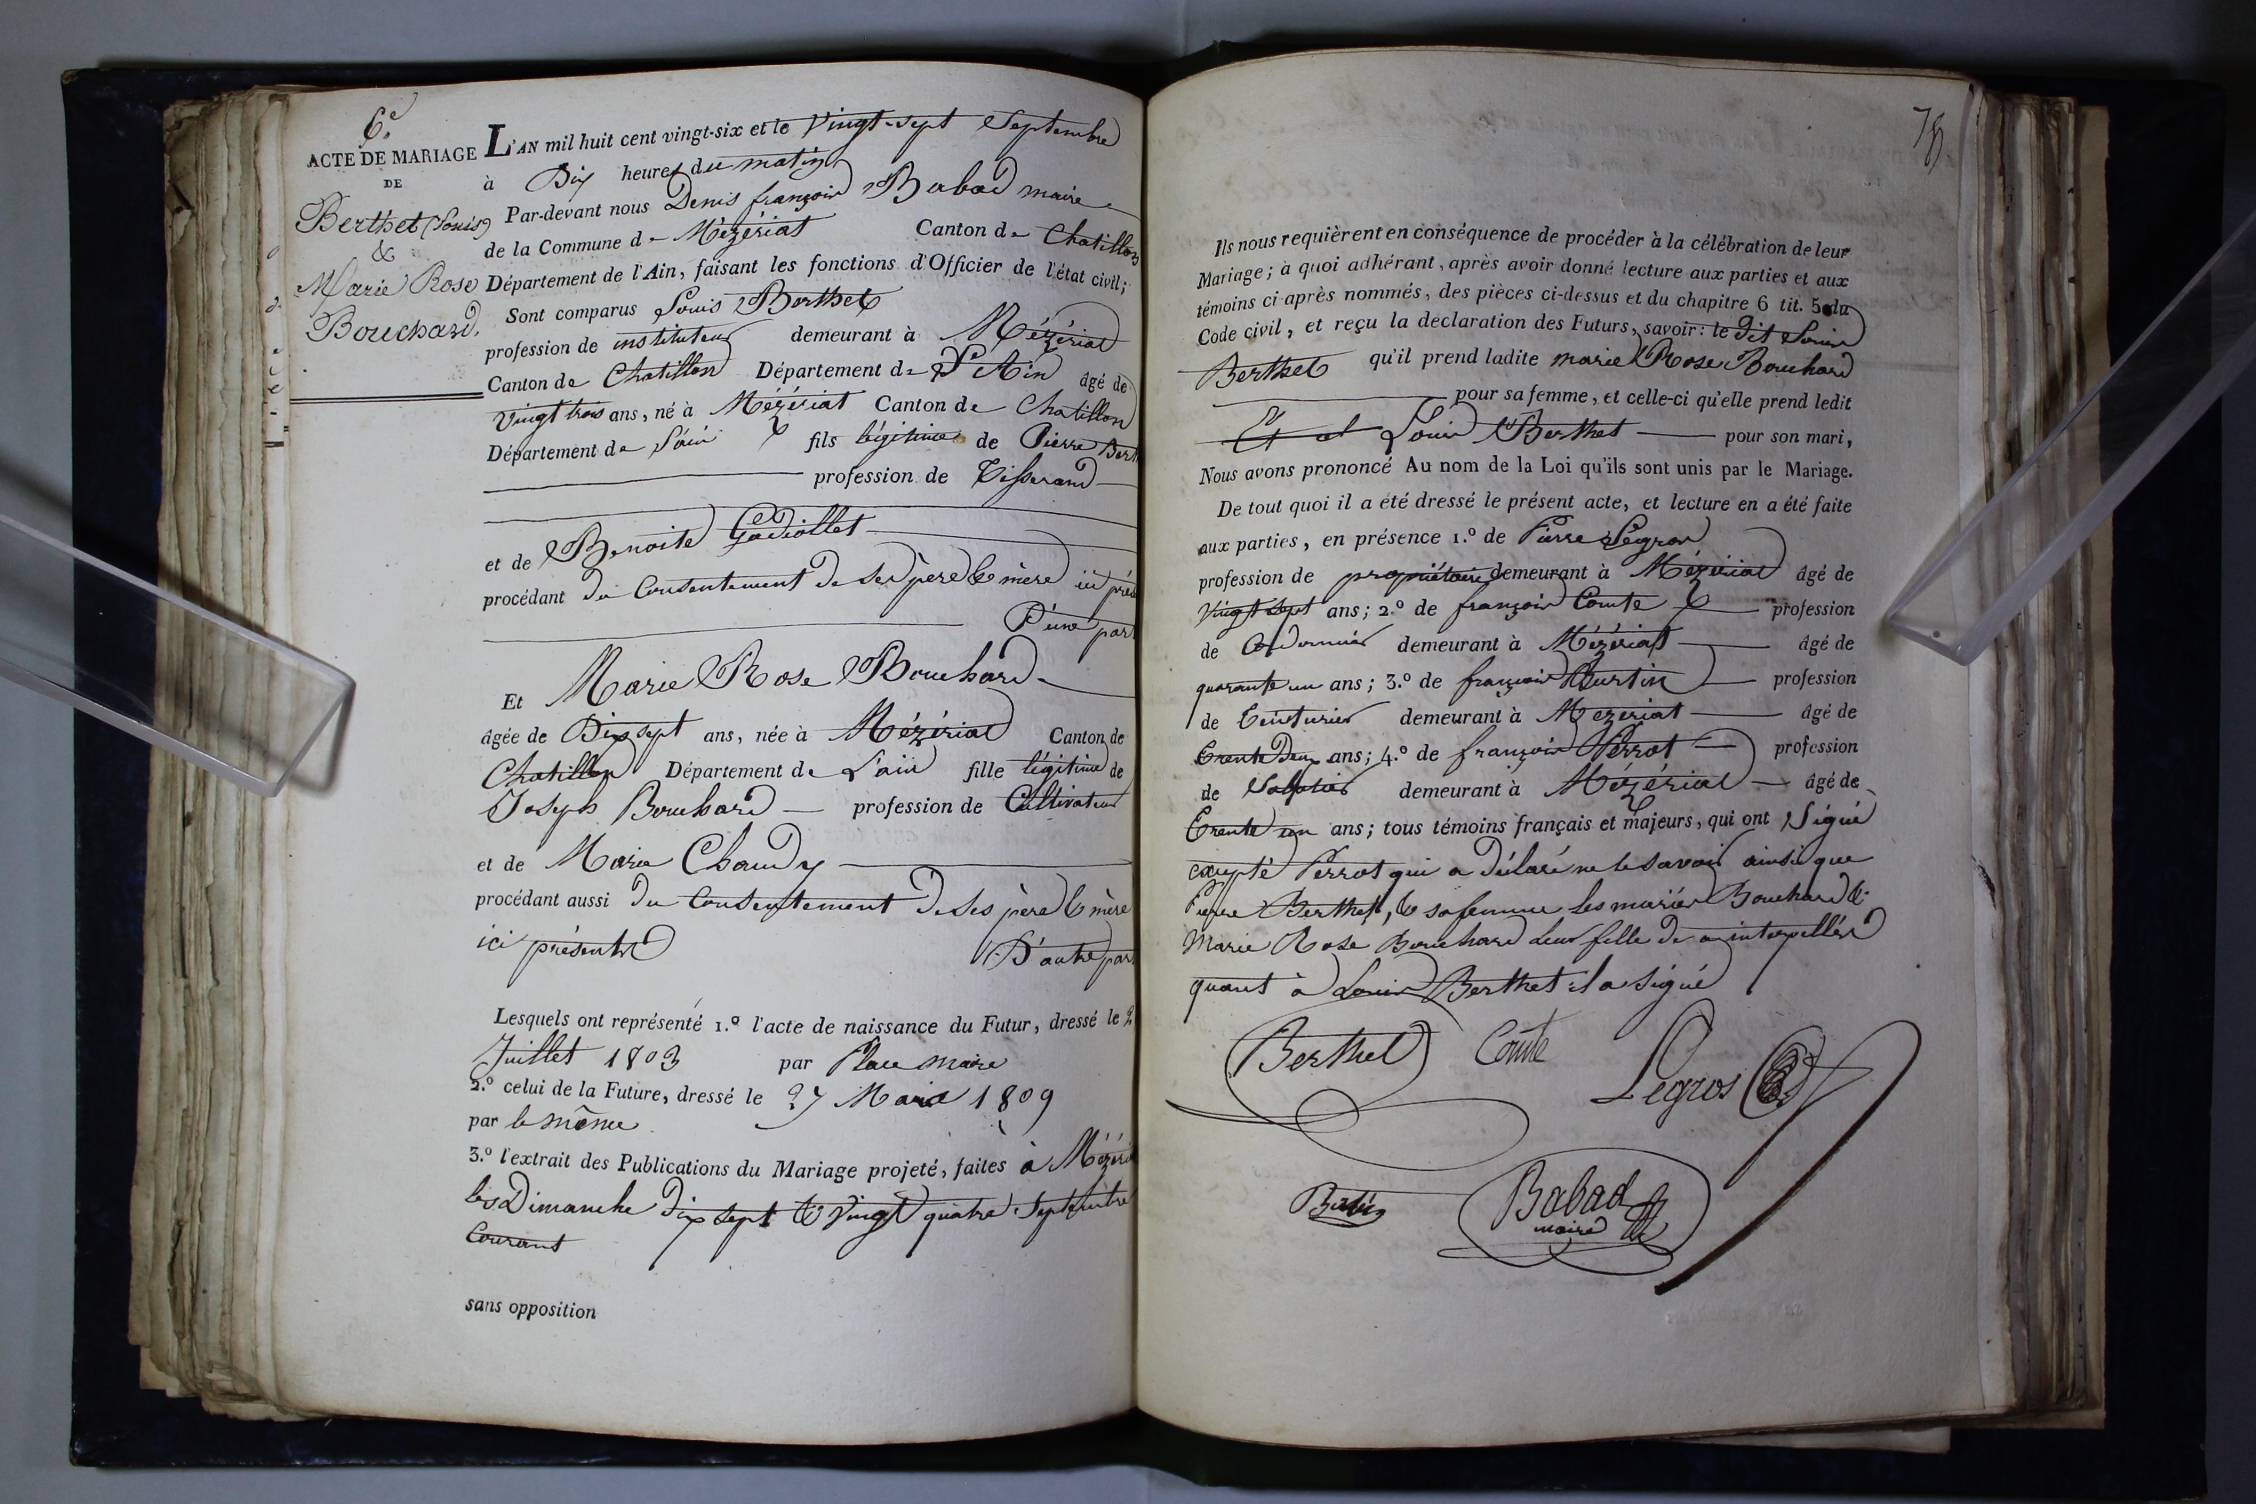 6.e
ACTE DE MARIAGE
DE
Berthet (Louis)
&
Marie Rose
Bouchard.
L'AN mil huit cent vingt-six et le Vingt-sept Septembre
à Dix heures du matin
Par-devant nous Denis françois Babad maire
de la Commune de Mézériat Canton de Chatillon
Département de l'Ain, faisant les fonctions d'Officier de l'état civil;
Sont comparus Louis Berthet
profession de instituteur demeurant à Mézériat
Canton de Chatillon Département de L'Ain âgé de
Vingt trois ans, né à Mézériat Canton de Chatillon
Département de L'ain fils légitime de Pierre Bert
profession de Tisserand
et de Benoite Gadiollet
procédant du Consentement de ses père & mère ici prés
D'une part
Et Marie Rose Bouchard
âgée de Dix sept ans, née à Mézériat Canton de
Chatillon Département de L'ain fille légitime de
Joseph Bouchard profession de Cultivateur
et de Marie Chaudy
procédant aussi du Consentement de ses père & mère
ici présents D'autre part
Lesquels ont représenté 1.º l'acte de naissance du Futur, dressé le 2
Juillet 1803 par Place maire
2.º celui de la Future, dressé le 27 Mars 1809
par le même
3.º l'extrait des Publications du Mariage projeté, faites à Mézéri
les Dimanche dix sept & Vingt quatre Septembre
Courant
sans opposition
78
Ils nous requièrent en conséquence de procéder à la célébration de leur
Mariage; à quoi adhérant, après avoir donné lecture aux parties et aux
témoins ci-après nommés, des pièces ci-dessus et du chapitre 6 tit. 5 du
Code civil, et reçu la déclaration des Futurs, savoir: le dit Louis
Berthet qu'il prend ladite marie Rose Bouchard
pour sa femme, et celle-ci qu'elle prend ledit
Louis Berthet pour son mari,
Nous avons prononcé Au nom de la Loi qu'ils sont unis par le Mariage.
De tout quoi il a été dressé le présent acte, et lecture en a été faite
aux parties, en présence 1.º de Pierre Legros
profession de propriétaire demeurant à Mézériat âgé de
Vingt sept ans; 2.º de françois Comte profession
de Cordonnier demeurant à Mézériat âgé de
quarante un ans; 3.º de françois Burtin profession
de Teinturier demeurant à Mezeriat âgé de
trente Deux ans; 4.º de françois Perrot profession
de Sabotier demeurant à Mézériat âgé de
Trente un ans; tous témoins français et majeurs, qui ont Signé
excepté Perrot qui a déclaré ne le savoir ainsi que
Pierre Berthet, & sa femme les mariés Bouchard &
Marie Rose Bouchard leur fille de ce interpellés
quant à Louis Berthet il a signé
Berthet Comte Legros
Babad
maire